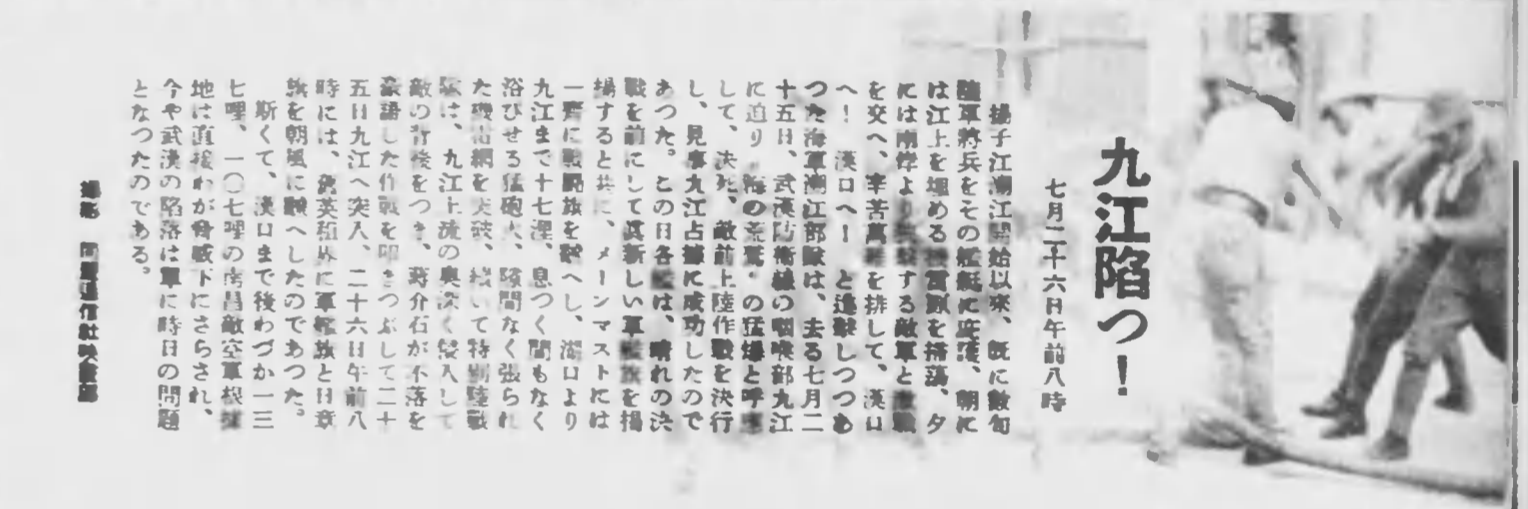 九江陷つ！
七月二十六日午前八時
揚子江溯江開始以來、既に數旬
陸軍將兵をその艦艇に庇護、朝に
は江上を埋める機雷原を掃蕩、夕
には兩岸より する敵軍と激戰
を交へ、辛苦萬難を排して、漢口
へ！　漢口へ！　と進擊しつつあ
つた海軍溯江部隊は、去る七月二
十五日、武漢防衛線の咽喉部九江
に迫り〝海の荒鷲〟の猛爆と呼應
して、決死、敵前上陸作戰を決行
し、見事九江占據に成功したので
あつた。この日各艦は、晴れの決
戰を前にして眞新しい軍艦旗を揭
揚すると共に、メーンマストには
一齊に戰鬪旗を飜へし、湖口より
九江まで十七浬、息つく間もなく
浴びせる猛砲火、隙間なく張られ
た機雷網を突破、續いて特別陸戰
隊は、九江上流の奥深く侵入して
敵の背後をつき、蔣介石が不落を
豪語した作戰を叩きつぶして二十
五日九江へ突入、二十六日午前八
時には、舊英租界に軍艦旗と日章
旗を朝風に飜へしたのであつた。
斯くて、漢口まで後わづか一三
七浬、一〇七浬の南昌敵空軍根據
地は直接わが脅威下にさらされ、
今や武漢の陷落は單に時日の問題
となつたのである。
撮影　同盟通信社映畫部